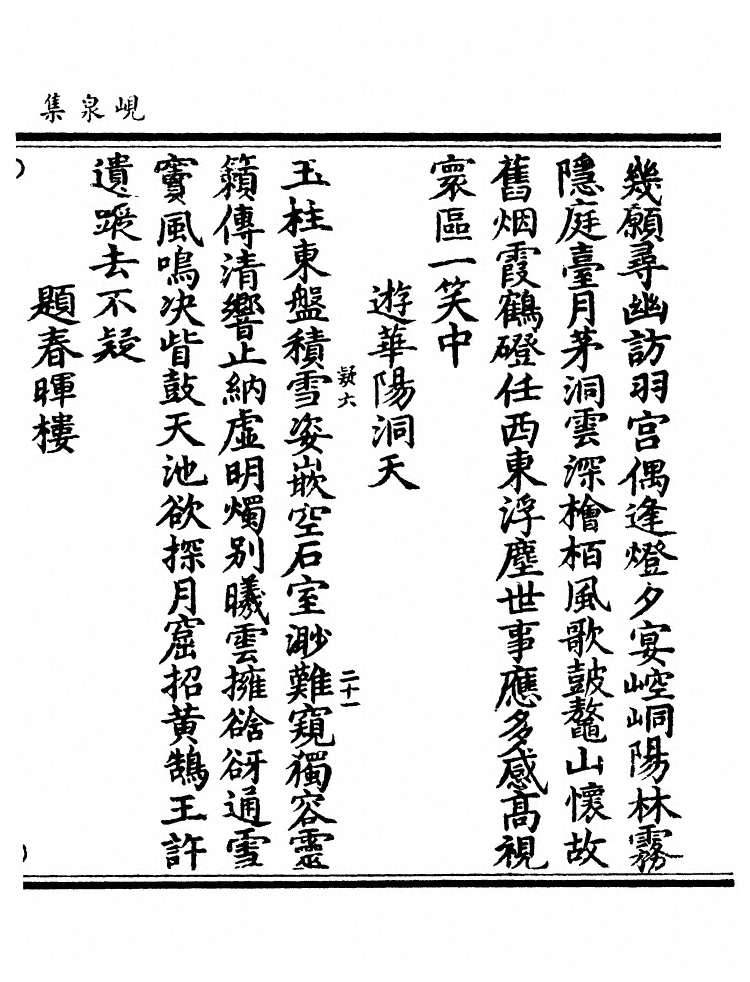 峴泉集
幾願尋幽訪羽宫偶逢燈夕宴崆峒陽林霧
隱庭臺月茅洞雲深檜栢風歌鼓鼇山懷故
舊烟霞鶴磴任西東浮塵世事應多感髙視
寰區一笑中
遊華陽洞天
玉柱東盤積雪姿嵌空石室渺難窺獨容靈
疑六
二十一
籟傳清響止納虚明燭别曦雲擁谽谺通雪
竇風鳴决眥鼓天池欲探月窟招黄鵠王許
遺蹤去不疑
題春暉樓